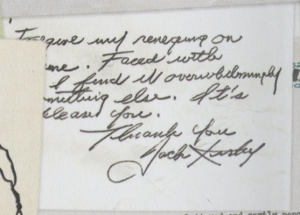 Forgive my reneging on
me. Faced with
I find it overwhelmingly
mething else. It's
please you.
Thank You
Jack Kirby